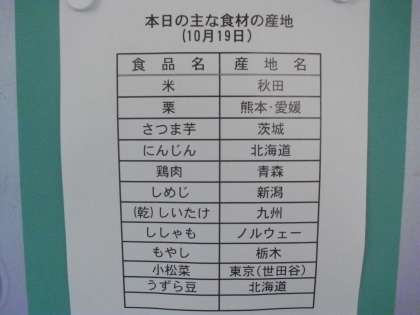 本日の主な食材の産地
(10月19日)
食品名 産地名
米 秋田
栗 熊本・愛媛
さつま芋 茨城
にんじん 北海道
鶏肉 青森
しめじ 新潟
(乾)しいたけ 九州
ししゃも ノルウェー
もやし 栃木
小松菜 東京(世田谷)
うずら豆 北海道